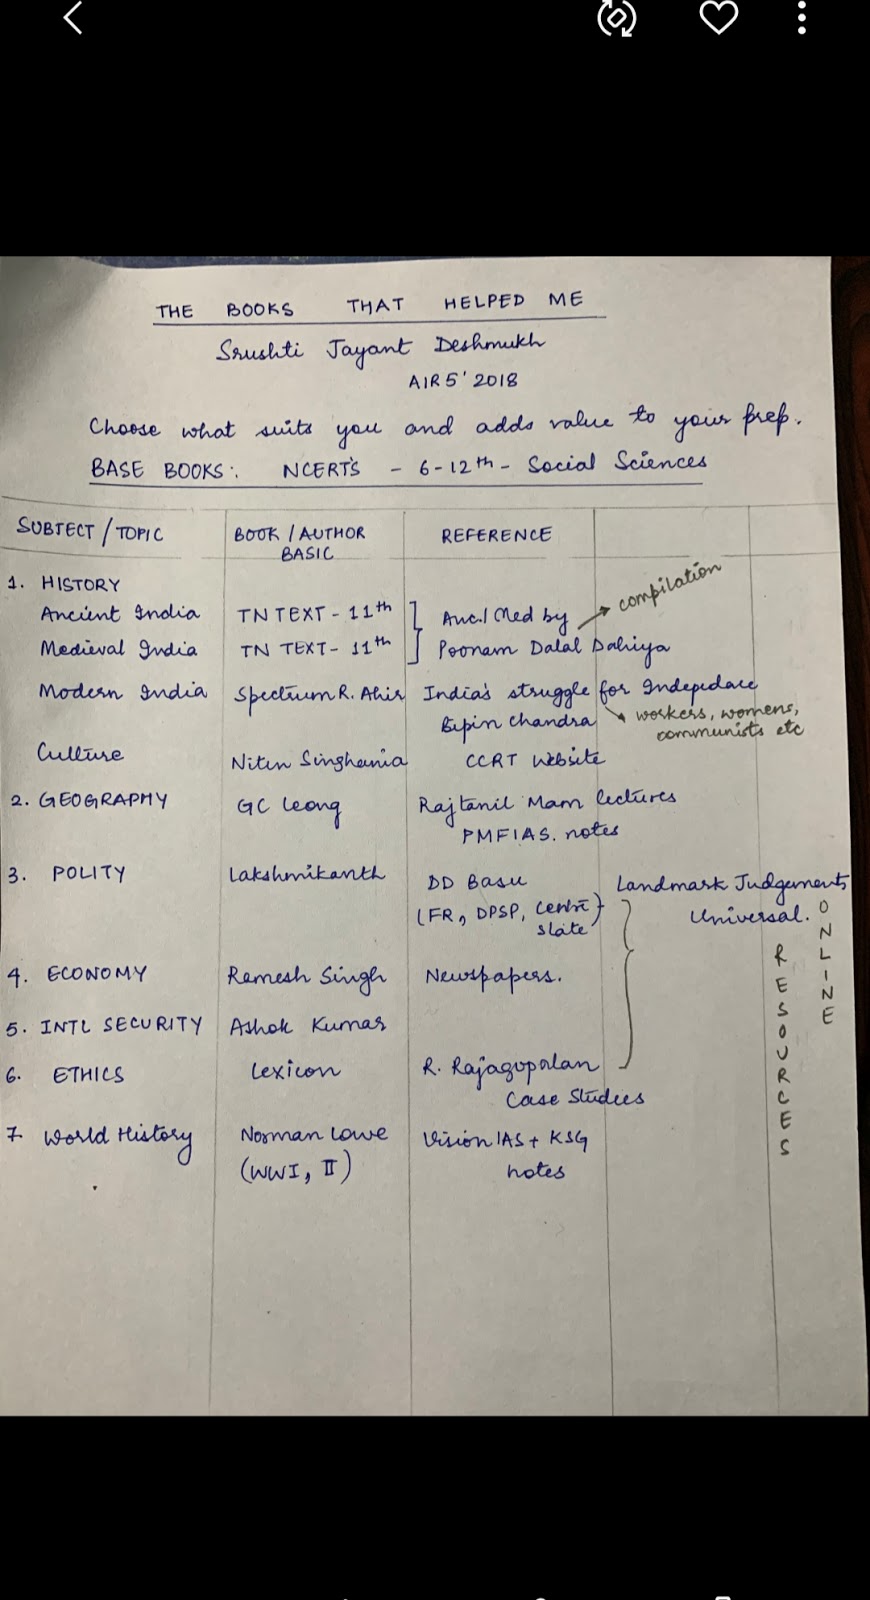 THE BOOKS THAT HELPED ME
Srushti Jayant Deshmukh
AIR 5' 2018
Choose what suits you and adds value to your prep.
BASE BOOKS: NCERT'S - 6-12th - Social Sciences
SUBJECT / TOPIC BOOK / AUTHOR BASIC REFERENCE
1. HISTORY
Ancient India TN TEXT - 11th Anc. / Med by → compilation
Medieval India TN TEXT - 11th Poonam Dalal Dahiya
Modern India Spectrum R. Ahir India's struggle for Indepedace
Bipin Chandra → workers, womens,
communists etc
Culture Nitin Singhania CCRT Website
2. GEOGRAPHY GC Leong Rajtanil Mam lectures
PMFIAS. notes
3. POLITY Lakshmikanth DD Basu Landmark Judgements
(FR, DPSP, Centre Universal.
state
4. ECONOMY Ramesh Singh Newspapers.
5. INTL SECURITY Ashok Kumar
6. ETHICS Lexicon R. Rajagopalan
Case Studies
7. World History Norman Lowe Vision IAS + KSG
(WWI, II) notes
ONLINE
RESOURCES